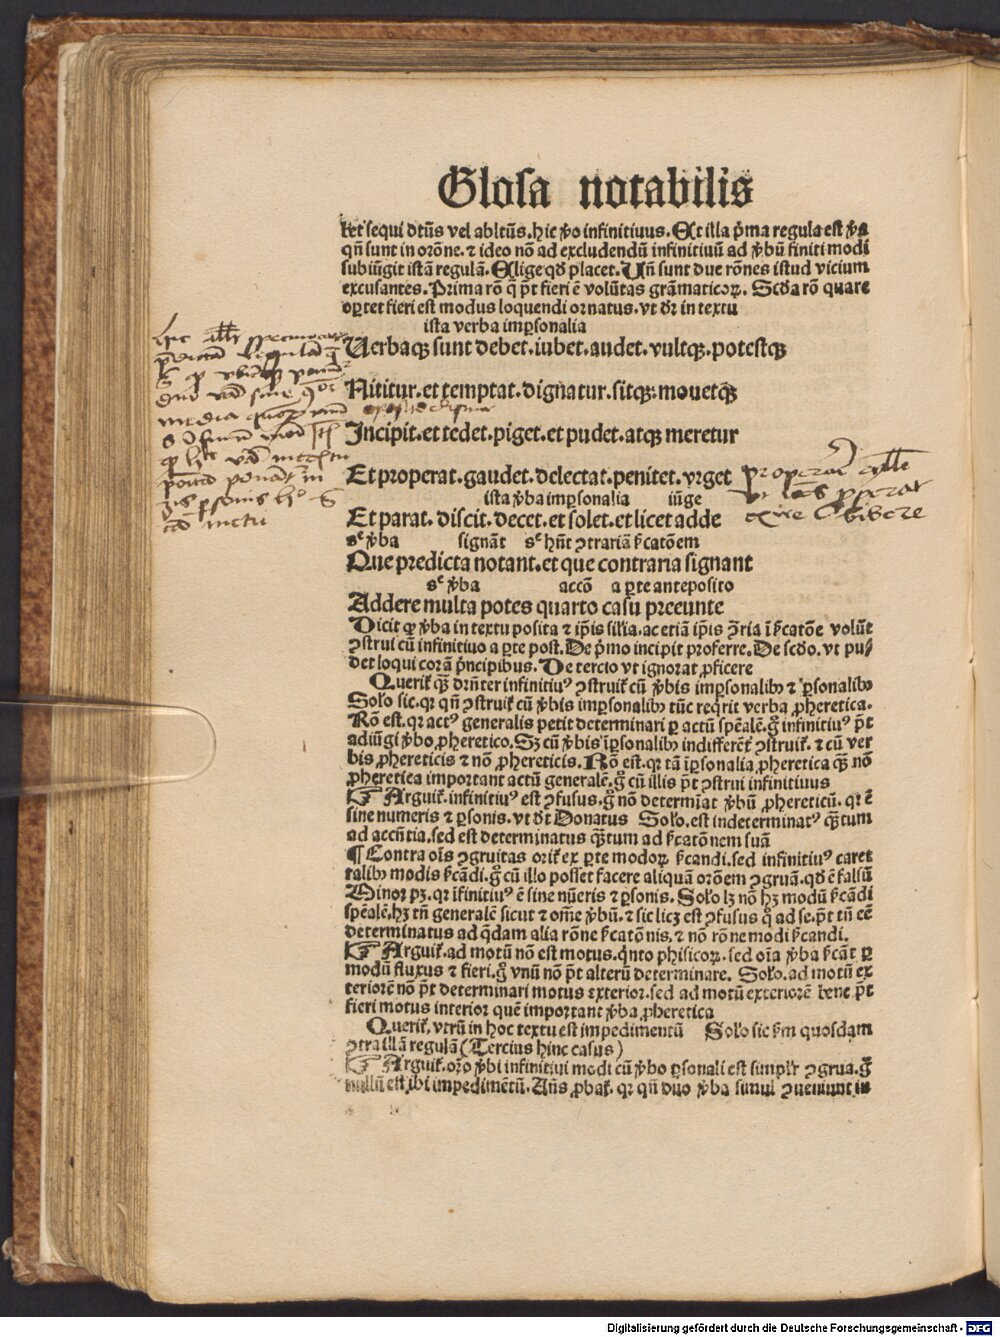 Glosa notabilis
bet sequi dtũs vel abltũs. hic ꝟo infinitiuus. Et illa p̃ma regula est ꝟa
qñ sunt in orõne. ⁊ ideo nõ ad excludendũ infinitiuũ ad ꝟbũ finiti modi
subiũgit istã regulã. Elige qd̕ placet. Uñ sunt due rõnes istud vicium
excusantes. Prima rõ q̃ p̃t fieri ẽ volũtas grãmaticoꝝ. Scd̕a rõ quare
oꝑtet fieri est modus loquendi ornatus. vt dr̃ in textu
ista verba imꝑsonalia
Uerbaqꝫ sunt debet. iubet. audet. vultqꝫ. potestqꝫ
Nititur. et temptat. dignatur. sitqꝫ. mouetqꝫ
Incipit. et tedet. piget. et pudet. atqꝫ meretur
Et properat. gaudet. delectat. penitet. vrget
ista ꝟba imꝑsonalia iũge
Et parat. discit. decet. et solet. et licet adde
sᵉ ꝟba signãt sᵉ hñt ꝯtrariã ẜcatõem
Que predicta notant. et que contraria signant
sᵉ ꝟba accõ a ꝑte anteposito
Addere multa potes quarto casu preeunte
Dicit qꝙ ꝟba in textu posita ⁊ ip̃is sil̕ia. ac etiã ip̃is ꝯ̃ria ĩ ẜcatõe volũt
ꝯstrui cũ infinitiuo a ꝑte post. De p̃mo incipit proferre. De scd̕o. vt pu⸗
det loqui corã p̃ncipibus. De tercio vt ignorat ꝓficere
Queriť qꝫ̃ dr̃nter infinitiuꝰ ꝯstruiť cũ ꝟbis imꝑsonalibꝫ ⁊ ꝑsonalibꝫ
Solõ sic. qꝛ qñ ꝯstruiť cũ ꝟbis imꝑsonalibꝫ tũc reqr̃it verba ꝓheretica.
Rõ est. qꝛ actꝰ generalis petit determinari ꝑ actũ spẽalẽ. g̊ infinitiuꝰ p̃t
adiũgi ꝟbo ꝓheretico. Sꝫ cũ ꝟbis ĩꝑsonalibꝫ indifferẽť ꝯstruiť. ⁊ cũ ver
bis ꝓhereticis ⁊ nõ ꝓhereticis. Rõ est. qꝛ tã ĩꝑsonalia ꝓheretica qꝫ̃ nõ
ꝓheretica important actũ generalẽ. g̊ cũ illis p̃t ꝯstrui infinitiuus
☞ Arguiť. infinitiuꝰ est ꝯfusus. g̊ nõ determĩat ꝟbũ ꝓhereticũ. qꝛ ẽ
sine numeris ⁊ ꝑsonis. vt dt̃ Donatus Solõ. est indeterminatꝰ qꝫ̃tum
ad accñtia. sed est determinatus qꝫ̃tum ad ẜcatõnem suã
¶ Contra oĩs ꝯgruitas oriť ex ꝑte modoꝝ ẜcandi. sed infinitiuꝰ caret
talibꝫ modis ẜcãdi. g̊ cũ illo posset facere aliquã orõem ꝯgruã. qd̕ ẽ falsũ
Minor pꝫ. qꝛ ĩfinitiuꝰ ẽ sine nũeris ⁊ ꝑsonis. Solõ lꝫ nõ hꝫ modũ ẜcãdi
spẽalẽ. hꝫ tñ generalẽ sicut ⁊ om̃e ꝟbũ. ⁊ sic licꝫ est ꝯfusus q̊ ad se. p̃t tñ eẽ
determinatus ad q̃dam alia rõne ẜcatõnis. ⁊ nõ rõne modi ẜcandi.
☞ Arguiť. ad motũ nõ est motus. q̊nto phisicoꝝ. sed oĩa ꝟba ẜcãt ꝑ
modũ fluxus ⁊ fieri. g̊ vnũ nõ p̃t alterũ determinare. Solõ. ad motũ ex
teriorẽ nõ p̃t determinari motus exterior. sed ad motũ exteriorẽ bene p̃t
fieri motus interior quẽ important ꝟba ꝓheretica
Queriť. vtrũ in hoc textu est impedimentũ Solõ sic ẜm quosdam
ꝯtra illã regulã (Tercius hinc casus)
☞ Arguiť. orõ ꝟbi infinitiui modi cũ ꝟbo ꝑsonali est simpl̕r ꝯgrua. g̊
nullũ est ibi impedimẽtũ. Añs ꝓbať. qꝛ qñ duo ꝟba simul ꝯueniunt in
Digitalisierung gefördert durch die Deutsche Forschungsgemeinschaft - DFG